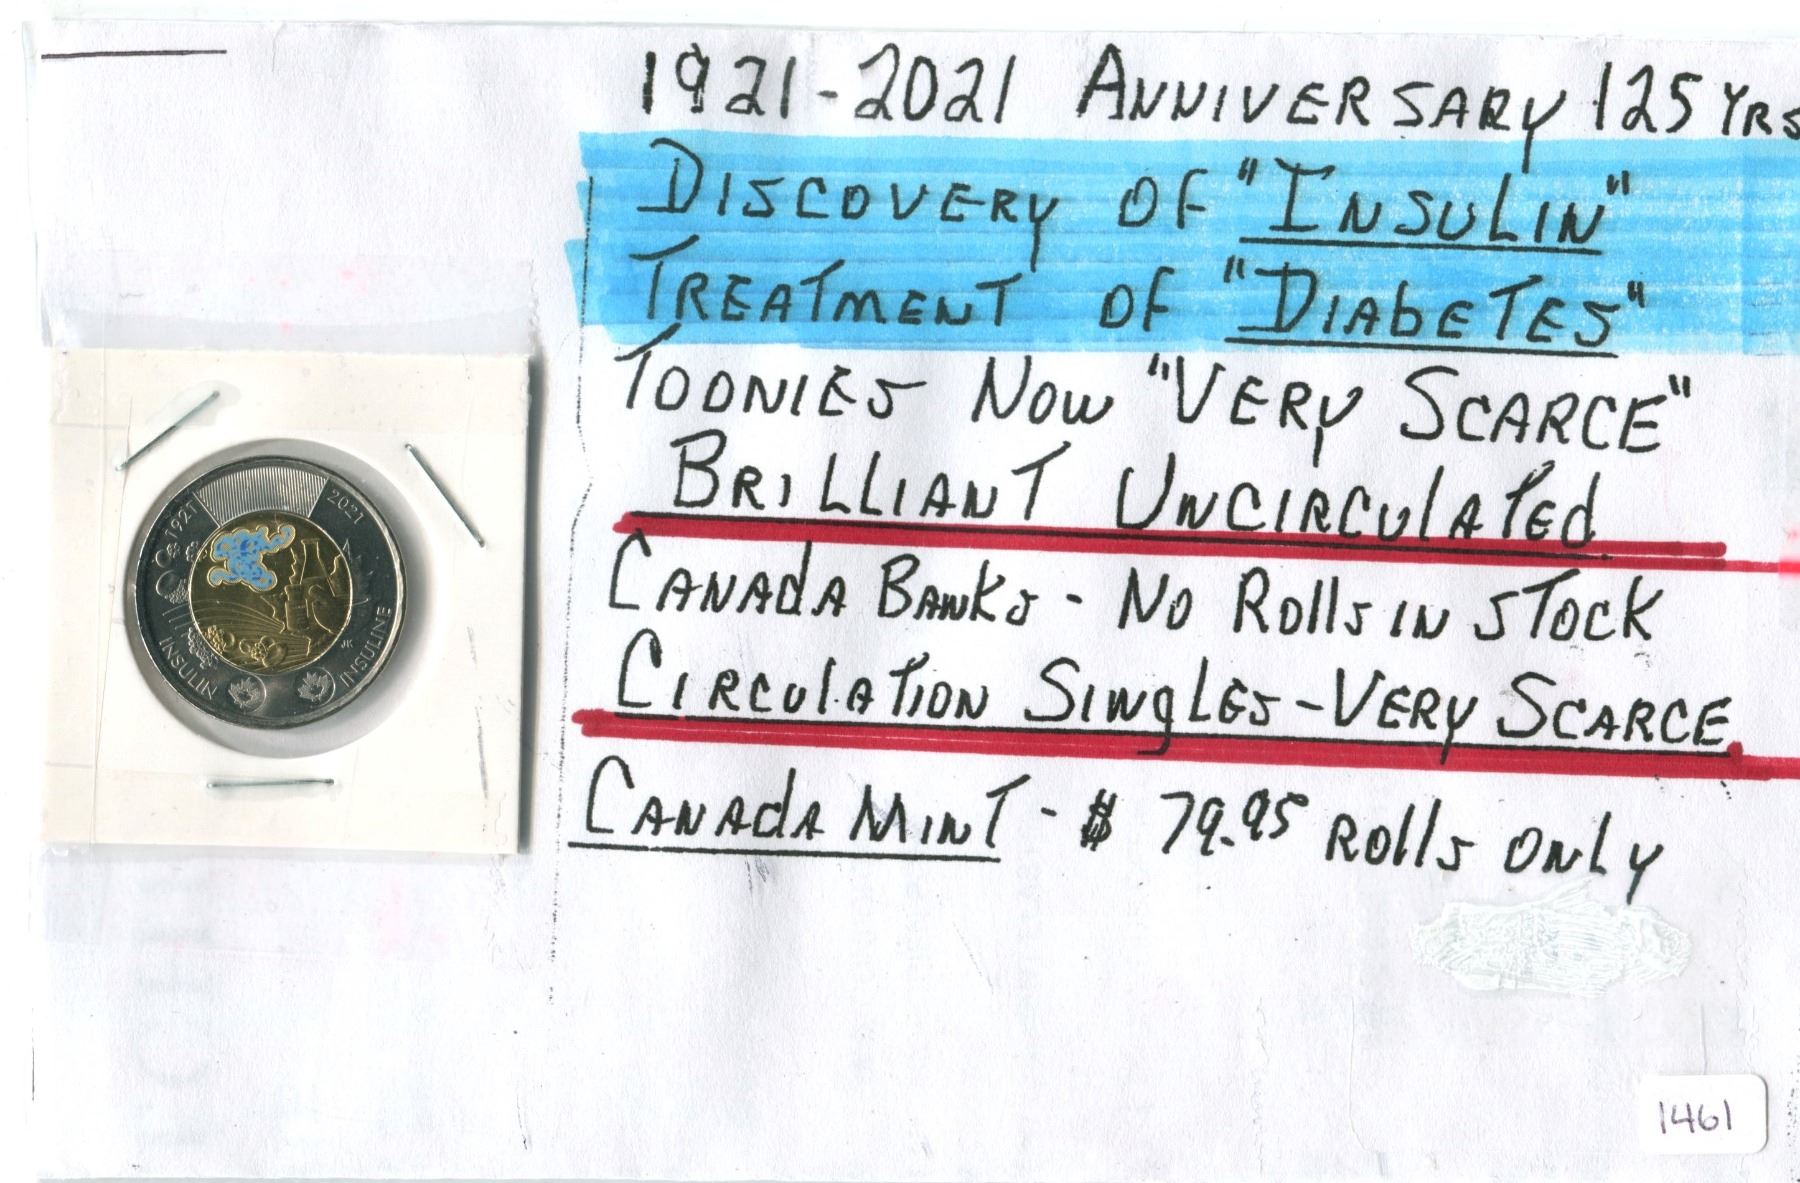 1921-2021 ANNIVERSARY 125 YRS
DISCOVERY OF "INSULIN"
TREATMENT OF "DIAbETES"
TOONIES NOW "VERY SCARCE"
BRILLIANT UNCIRCULATEd
CANAdA BANKS - NO ROllS IN STOCK
CIRCULATION SINgLES - VERY SCARCE
CANAdA MINT - $ 79.95 ROllS ONLY
1921
2021
INSULIN
INSULINE
JK
1461